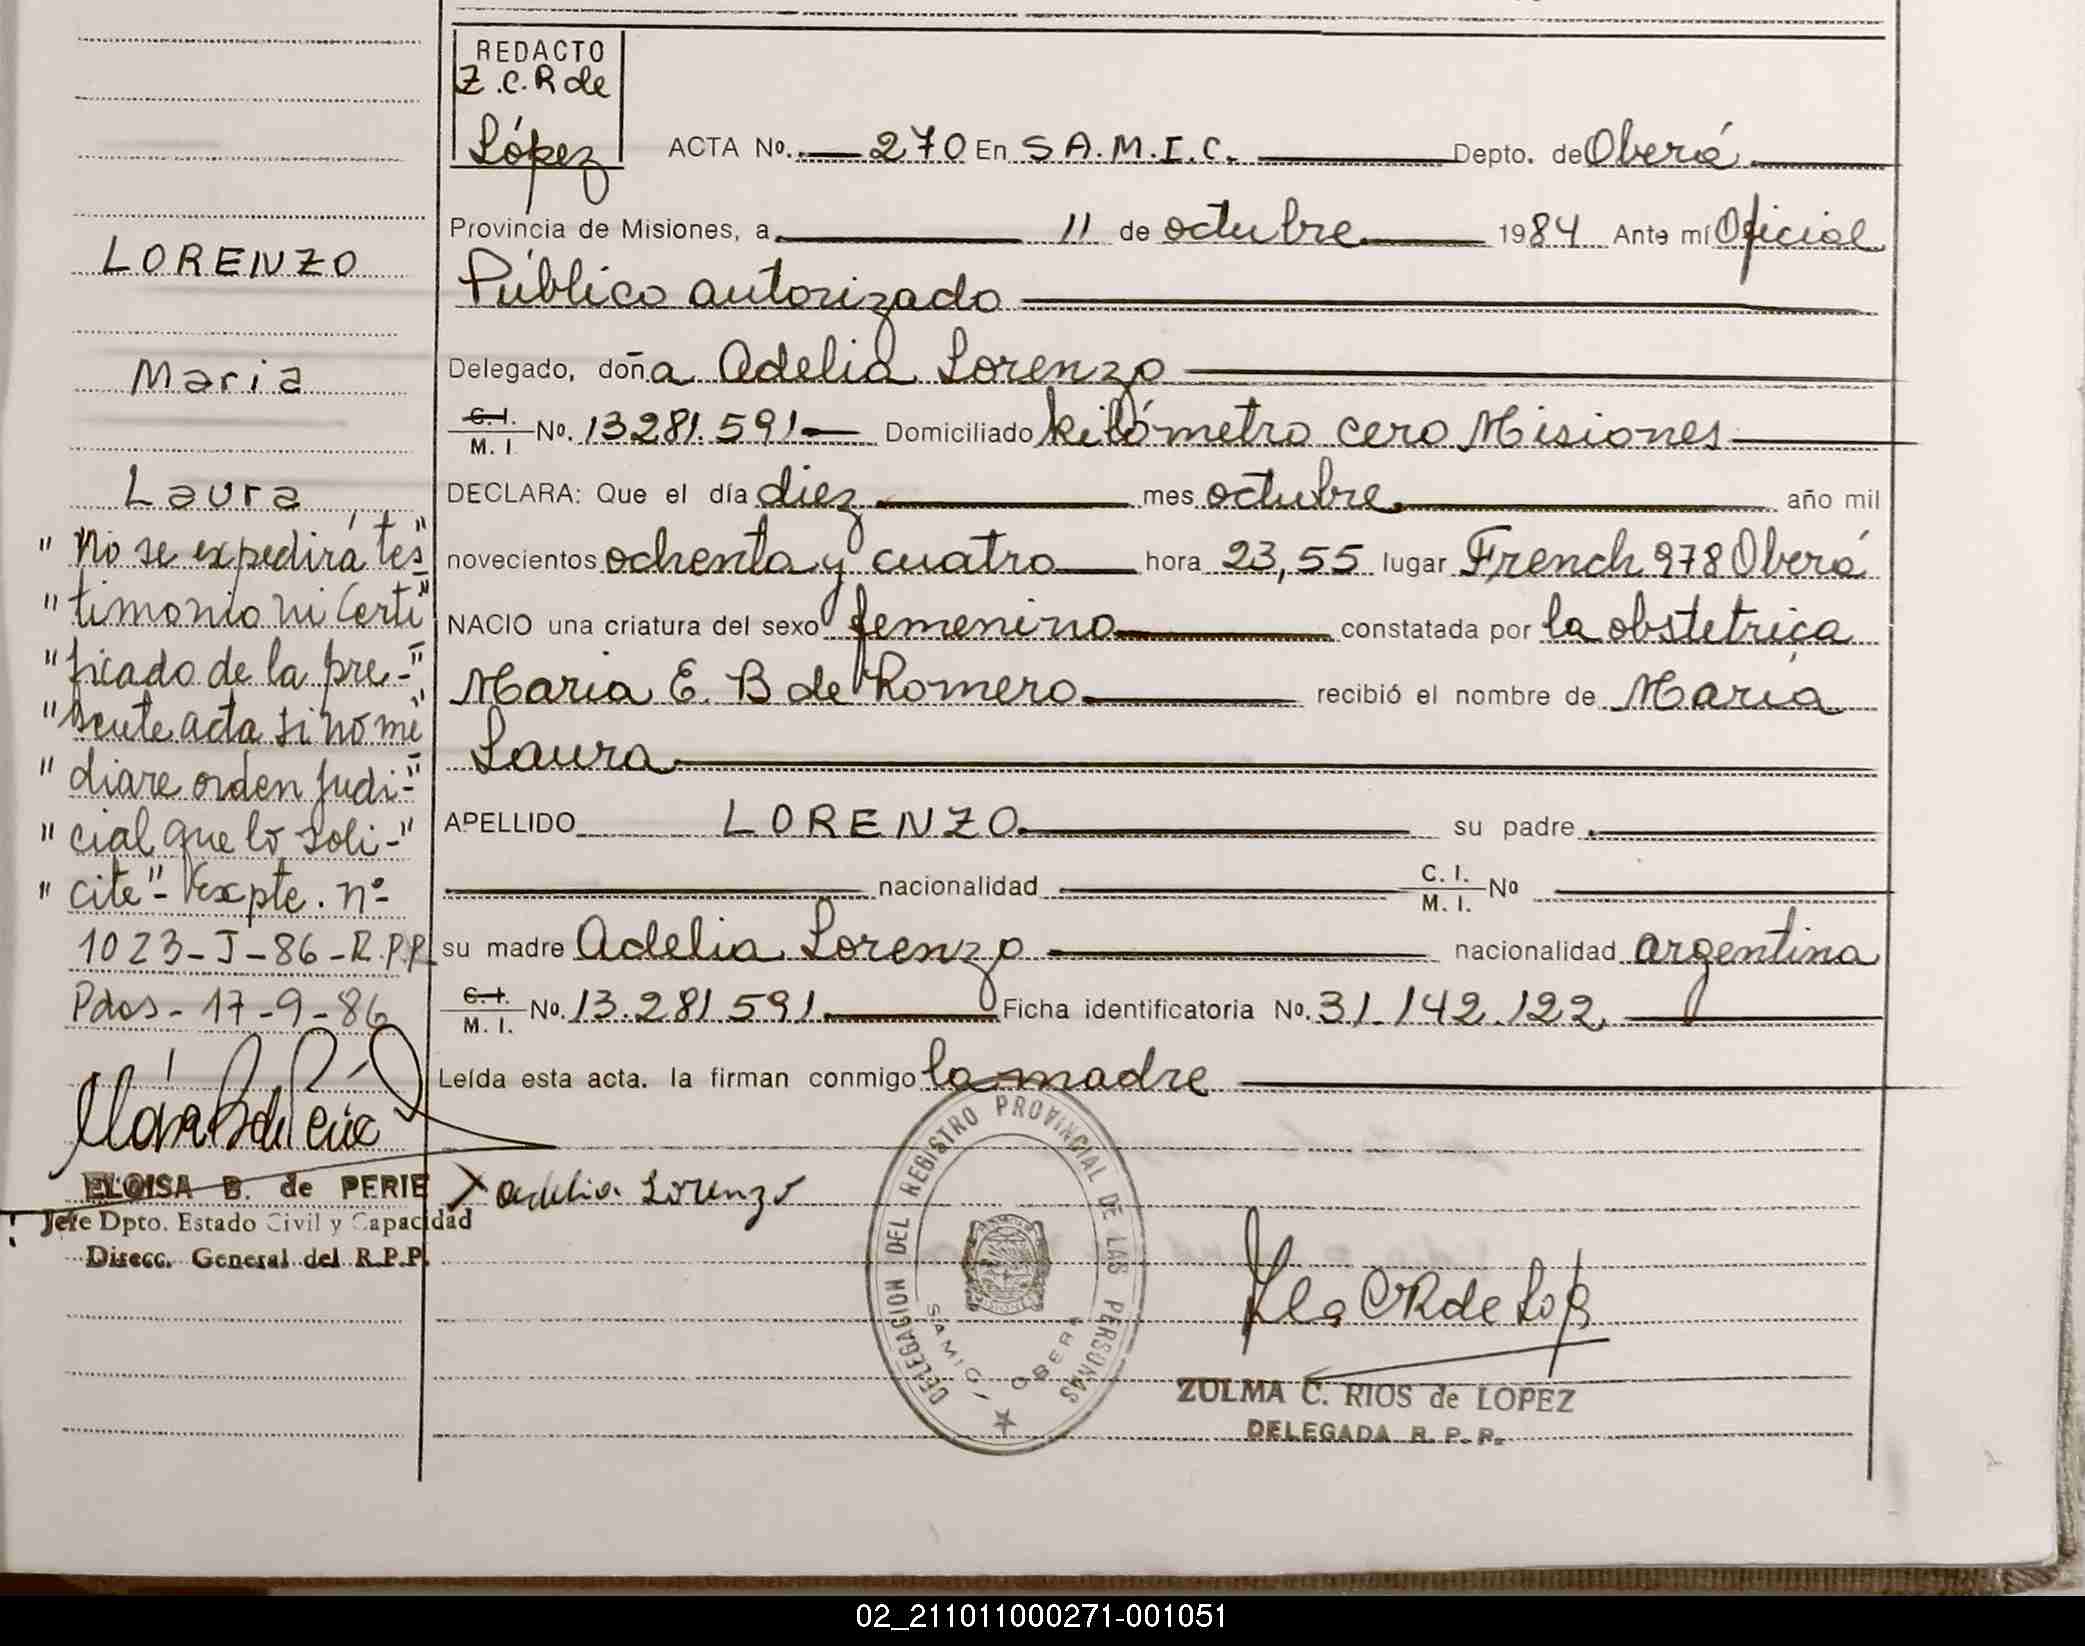 REDACTO
Z.C.R de
López
ACTA No. 270 En S.A.M.I.C. Depto. de Oberá
Provincia de Misiones, a 11 de octubre 1984 Ante mí Oficial
Público autorizado
Delegado, doña Adelia Lorenzo
C.I. M.I. No. 13.281.591 Domiciliado kilómetro cero Misiones
DECLARA: Que el día diez mes octubre año mil
novecientos ochenta y cuatro hora 23,55 lugar French 978 Oberá
NACIO una criatura del sexo femenino constatada por la obstetrica
Maria E. B de Romero recibió el nombre de María
Laura
APELLIDO LORENZO su padre
nacionalidad C. I. M. I. No
su madre Adelia Lorenzo nacionalidad argentina
C.I. M. I. No. 13.281.591 Ficha identificatoria No. 31.142.122
Leída esta acta. la firman conmigo la madre
LORENZO
Maria
Laura
"No se expedirá tes"
"timonio ni Certi"
"ficado de la pre-"
"sente acta si no me"
"diare orden judi-"
"cial que lo soli-"
"cite"- Expte. nº
1023-J-86-R.P.P.
Pdas-17-9-86
ELOISA B. de PERIE
Jefe Dpto. Estado Civil y Capacidad
Direcc. General del R.P.P.
X Adelia Lorenzo
DELEGACION DEL REGISTRO PROVINCIAL DE LAS PERSONAS
SAMIC - OBERA
MISIONES
ZULMA C. RIOS de LOPEZ
DELEGADA R. P. P.
02_211011000271-001051